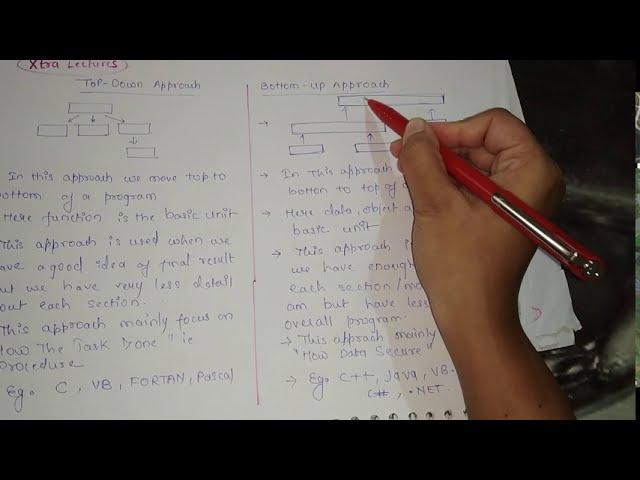 Xtra Lectures
Top-Down Approach
In this approach we move top to
bottom of a program
Here function is the basic unit
This approach is used when are
have a good idea of final result
but we have very less detail
out each section.
This approach mainly focus on
How The Task Done" ie
procedure
Eg. C, VB, FORTAN, Pascal
Bottom-up Approach
→
→ In this approach
botton to top of
→ Here data, object a
basic unit
→ This approach i
we have enough
each section/mo
am but have less
overall program.
→ This approach mainly
"How Data Secure"
→ Eg. C++, Java, VB.
C#, .NET.